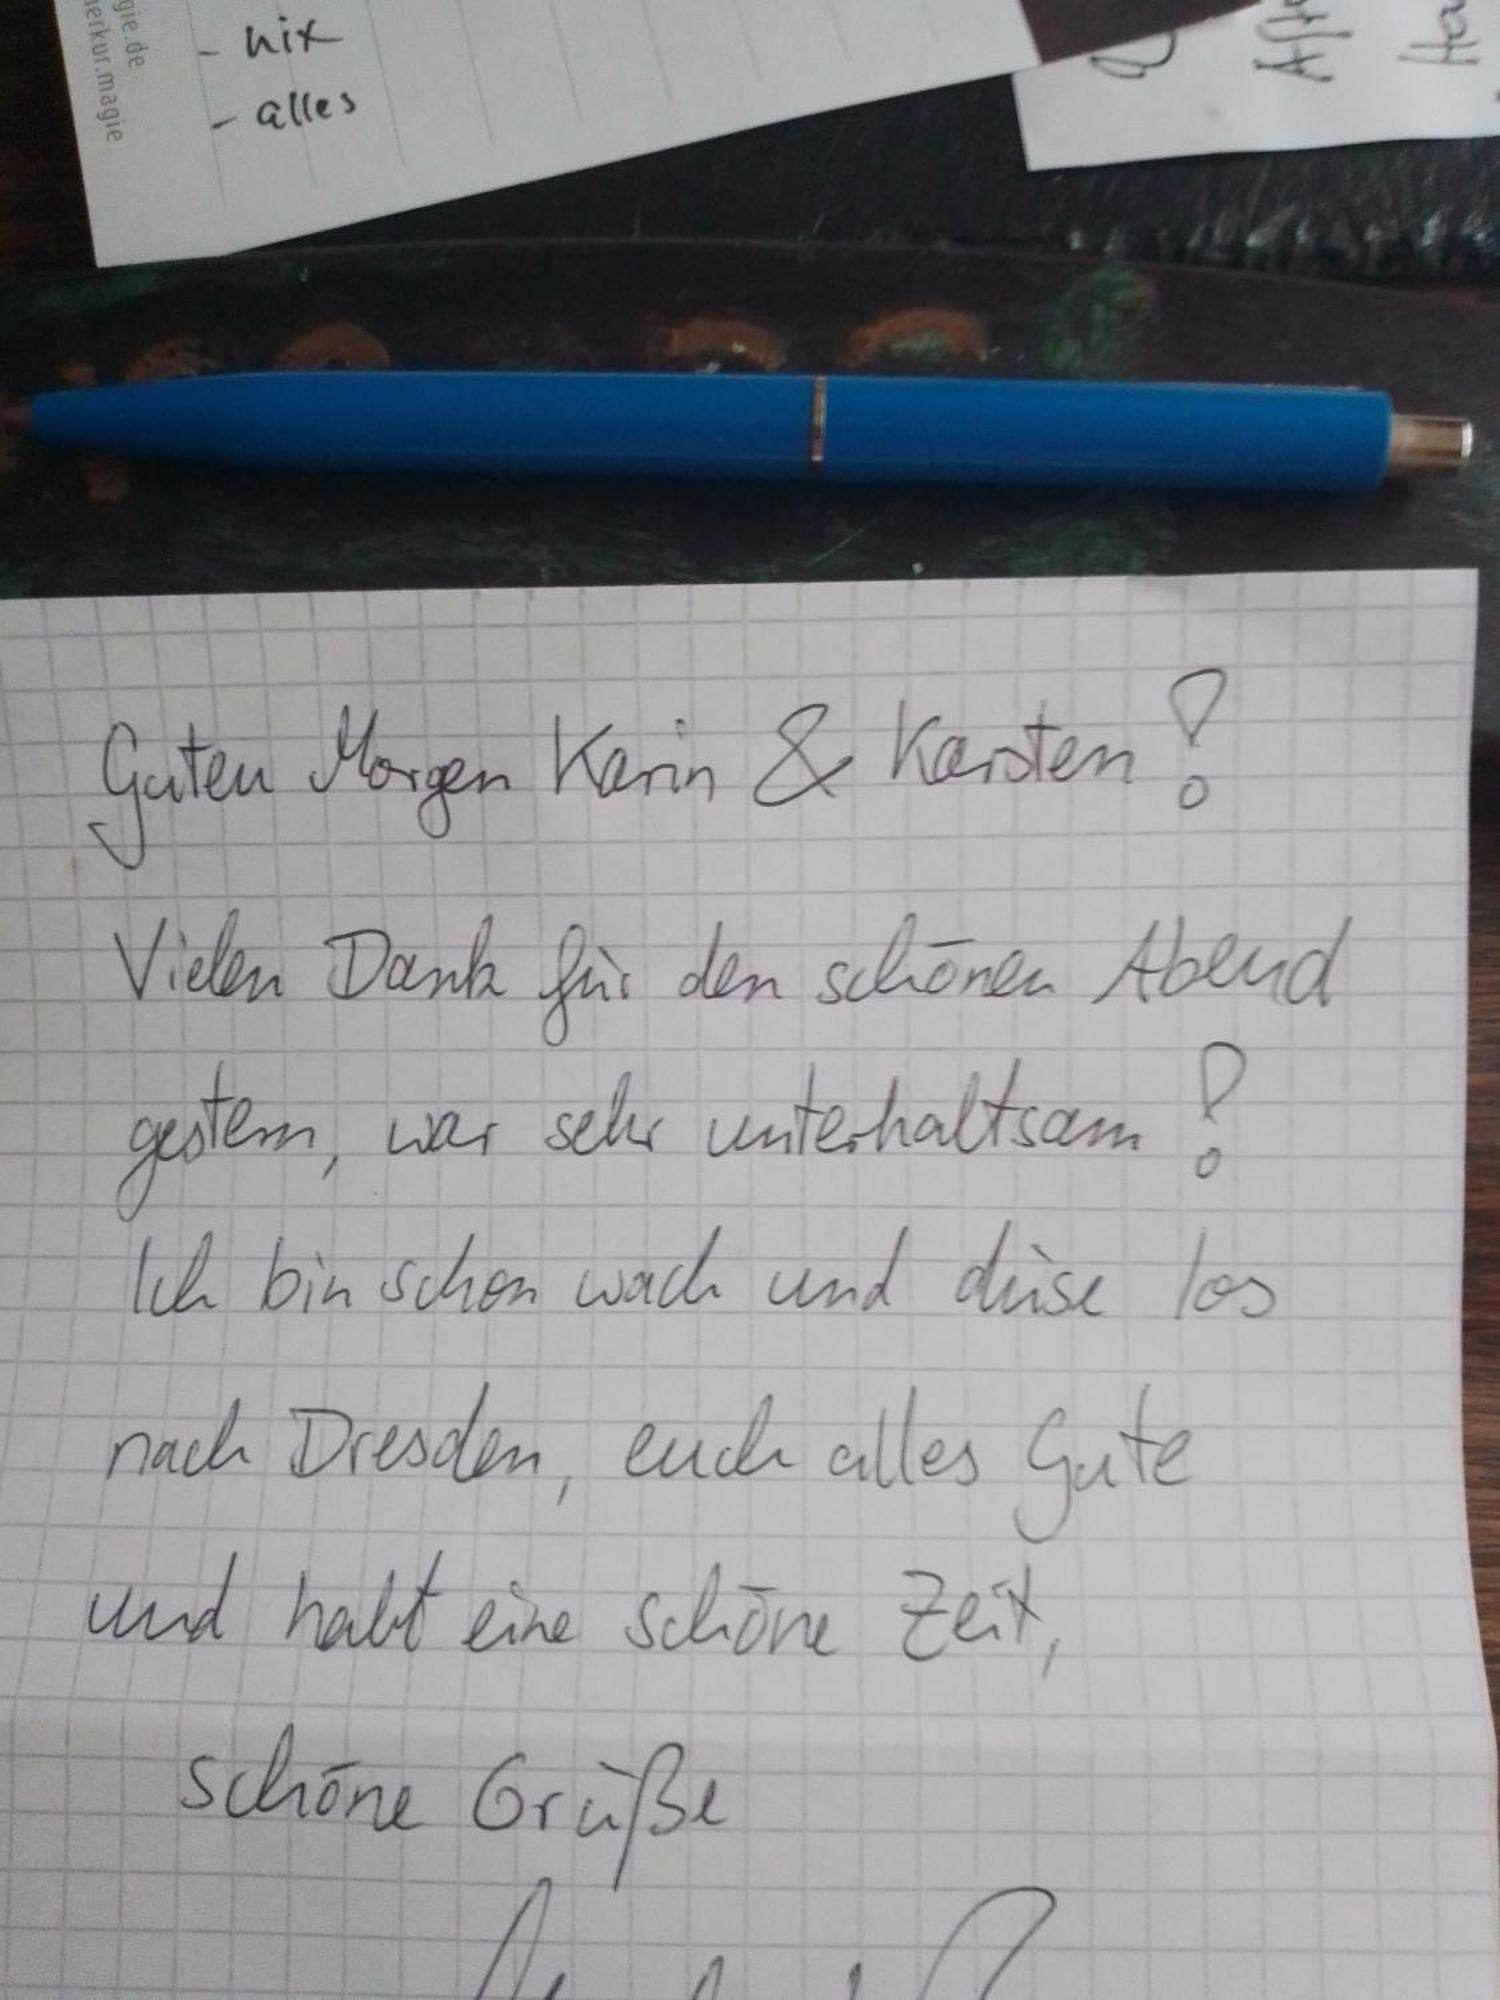 gie.de
merkur.magie
- nix
- alles
Guten Morgen Karin & Karsten!
Vielen Dank für den schönen Abend
gestern, war sehr unterhaltsam!
Ich bin schon wach und düse los
nach Dresden, euch alles Gute
und habt eine schöne Zeit,
schöne Grüße